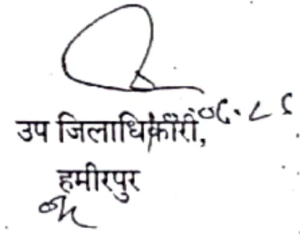 उप जिलाधिकारी,
हमीरपुर